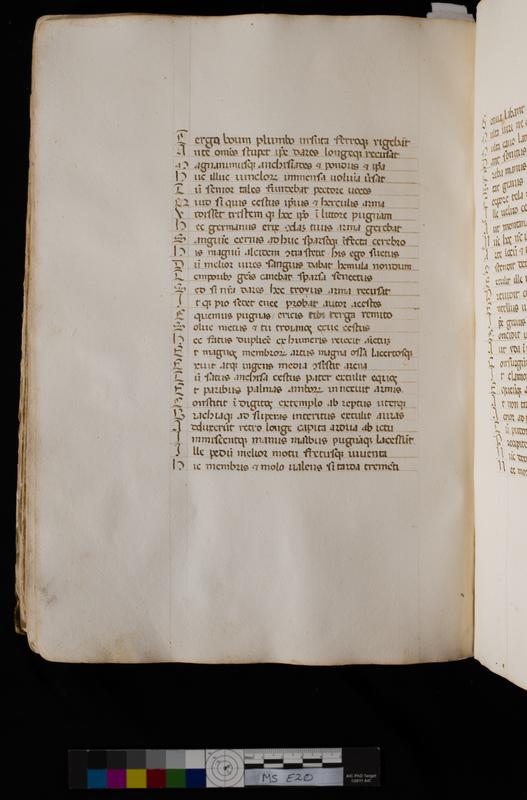 T erga boum plumbo insuto ferroqȝ rigebāt
A nte om̄s stupet ip̄e dares longeqȝ recusat
M agnanimusqȝ anchisiades & pondus & ip̄a
H uc illuc uinclorꝝ inmensa uolumīa ūsat
T ū senior tales fundebat pectore uoces
Q uid si quis cestus ip̄ius & herculis arma
V idisset tristem qȝ hoc ip̄o ī litore pugnam
H ec germanus erix quondam tuus arma gerebat
S anguine cernis adhuc sparsoqȝ īfecta cerebro
H is magnū alcidem contra stetit his ego suetus
D ū melior uires sanguis dabat hemula nondum
T emporibus gēis canebat sparsa senectus
S ed si nr̄a dares hec troyus arma recusat
I t qȝ pio sedet enee probat autor acestes
E quemus pugnas ericis tibi terga remito
S olue metus & tu troianos exue cestus
H ec fatus duplicē ex humeris reiecit amictū
E t magnos membrorꝝ artus magna ossa lacertosqȝ
E xuit atqȝ ingens media consistit arena
T ū satus anchisa cestus pater extulit equos
E t paribus palmas amborꝝ innexuit armis
C onstitit ī digitos extemplo ab reptus uterqȝ
B rachiaqȝ ad superas interitus extulit auras
A bduxerūt retro longe capita ardua ab ictu
I nmiscentqȝ manus manibus pugnāqȝ lacessūt
I lle pedū melior motu fretusqȝ iuuenta
H ic membris & molo ualens si tarda tremēti
MS E20